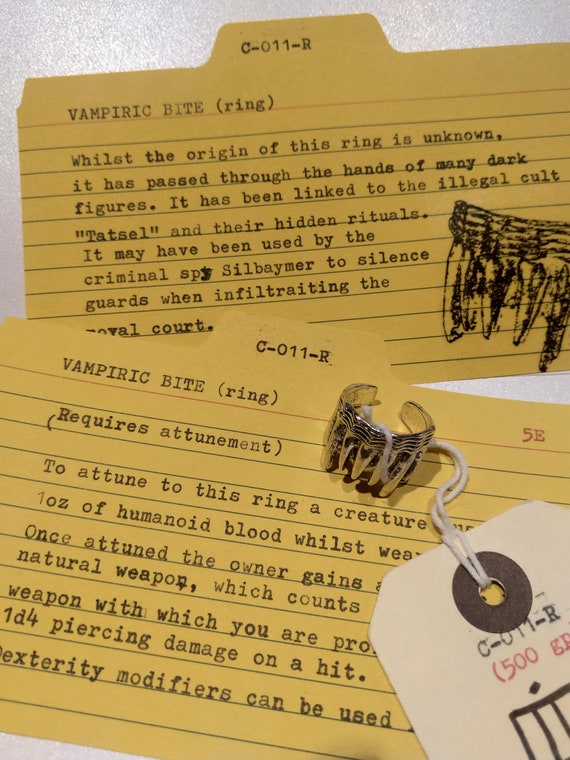 C-011-R
VAMPIRIC BITE (ring)
Whilst the origin of this ring is unknown,
it has passed through the hands of many dark
figures. It has been linked to the illegal cult
"Tatsel" and their hidden rituals.
It may have been used by the
criminal spy Silbaymer to silence
guards when infiltraiting the
royal court.
C-011-R
VAMPIRIC BITE (ring)
(Requires attunement)
5E
To attune to this ring a creature
1oz of humanoid blood whilst
Once attuned the owner gains
natural weapon, which counts
weapon with which you are
1d4 piercing damage on a hit.
Dexterity modifiers can be used
C-011-R
(500